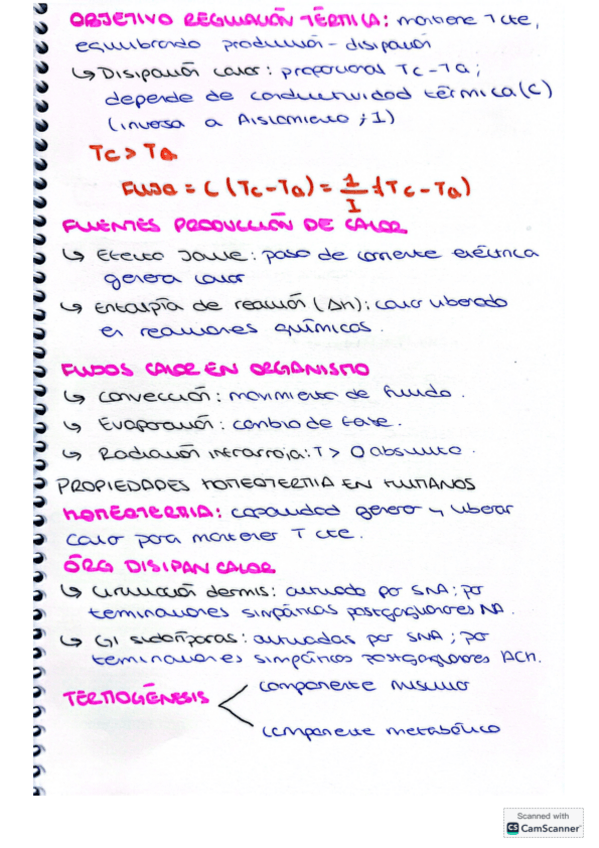 OBJETIVO REGULACIÓN TÉRMICA: mantiene T cte,
equilibrando producción - disipación
↳ Disipación calor: proporcional Tc - Ta;
depende de conductividad térmica (C)
(inversa a Aislamiento; I)
Tc > Ta
Flujo = C (Tc - Ta) = 1/I · (Tc - Ta)
FUENTES PRODUCCIÓN DE CALOR
↳ Efecto Joule: paso de corriente eléctrica
genera calor
↳ Entalpía de reacción (Δh): calor liberado
en reacciones químicos.
FLUJOS CALOR EN ORGANISMO
↳ Convección: movimiento de fluido.
↳ Evaporación: cambio de fase.
↳ Radiación infrarroja: T > 0 absoluto.
PROPIEDADES HOMEOTERMIA EN HUMANOS
HOMEOTERMIA: capacidad generar y liberar
calor para mantener T cte.
ÓRG DISIPAN CALOR
↳ Circulación dermis: activado por SNA; por
terminaciones simpáticas postganglionares NA.
↳ Gl sudoríparas: activadas por SNA; por
terminaciones simpáticos postganglionares ACh.
TERMOGÉNESIS
componente muscular
componente metabólico
Scanned with
CS CamScanner